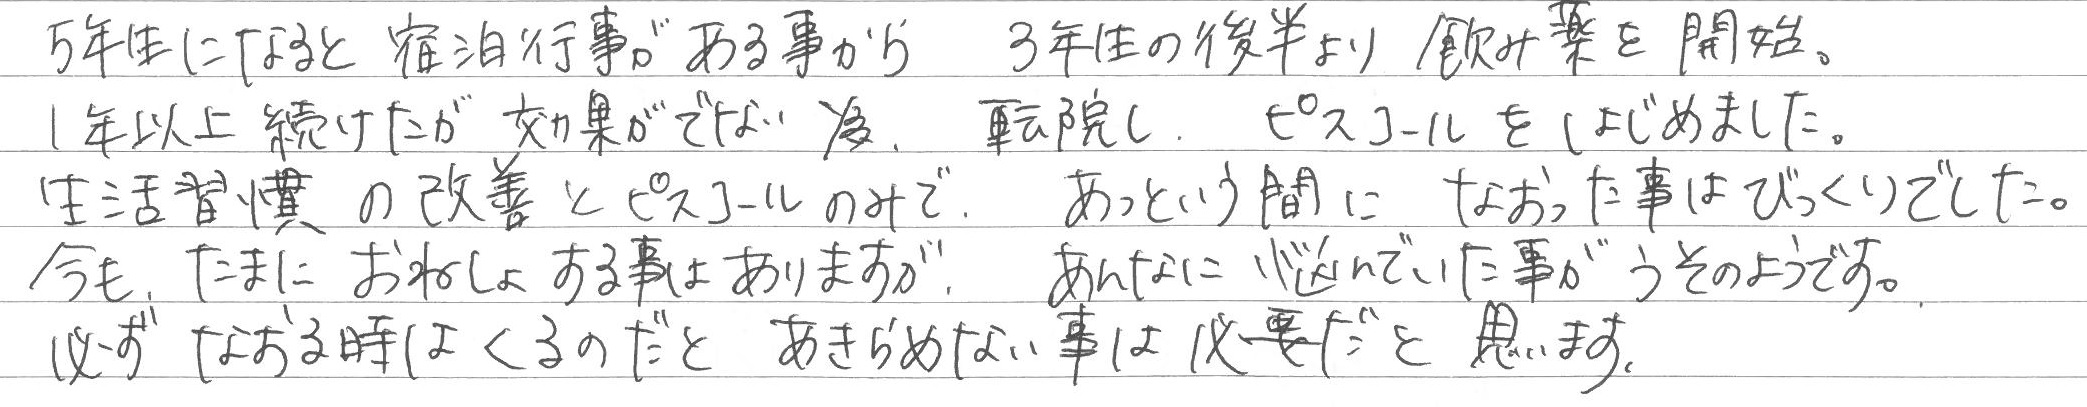 5年生になると 宿泊行事が ある事から 3年生の後半より 飲み薬を 開始。
1年以上 続けたが 効果がでない為、 転院し、 ピスコールを はじめました。
生活習慣の改善とピスコールのみで、 あっという間に なおった事はびっくりでした。
今も、たまに おねしょする事はありますが、 あんなに 悩んでいた事が うそのようです。
必ず なおる時は くるのだと あきらめない事は 必要だと 思います。